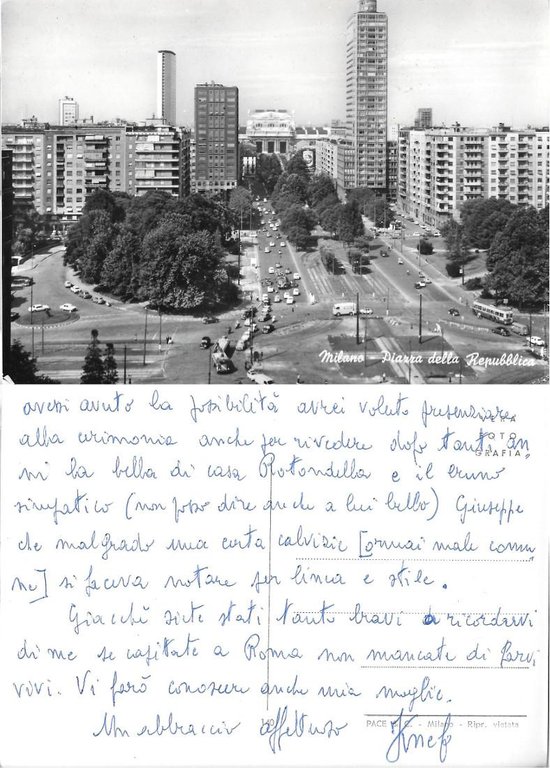 Milano - Piazza della Repubblica
avessi avuto la possibilità avrei voluto presenziare
alla cerimonia anche per rivedere dopo tanti an
VERA
FOTO
GRAFIA
ni la bella di casa Rotondella e il
simpatico (non posso dire anche a lui bello) Giuseppe
che malgrado una certa calvizie [ormai male comu
ne] si faceva notare per linea e stile.
Giacchè siete stati tanto bravi a ricordarvi
di me se capitate a Roma non mancate di farvi
vivi. Vi farò conoscere anche mia moglie.
Un abbraccio affettuoso
PACE - Milano - Ripr. vietata